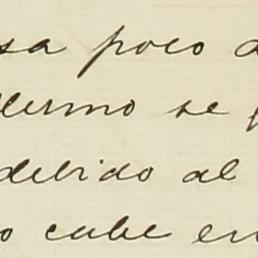 sa poco a
llermo se
debido al
o cabe en